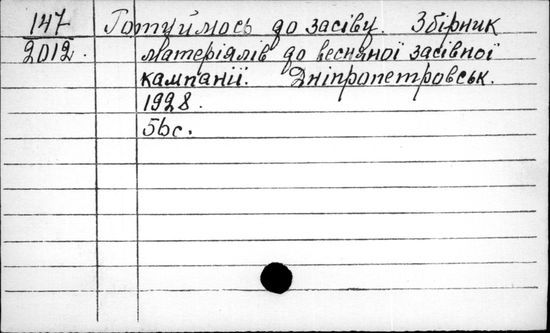 147 Готуймось до засіву. Збірник
2012. матеріялів до весняної засівної
кампанії. Дніпропетровськ.
1928.
56с.